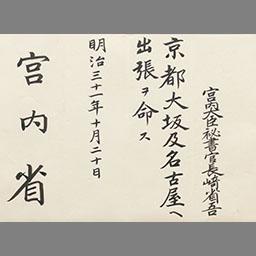 宮内大臣秘書官長崎省吾
京都大坂及名古屋へ
出張ヲ命ス
明治三十一年十月二十日
宮内省